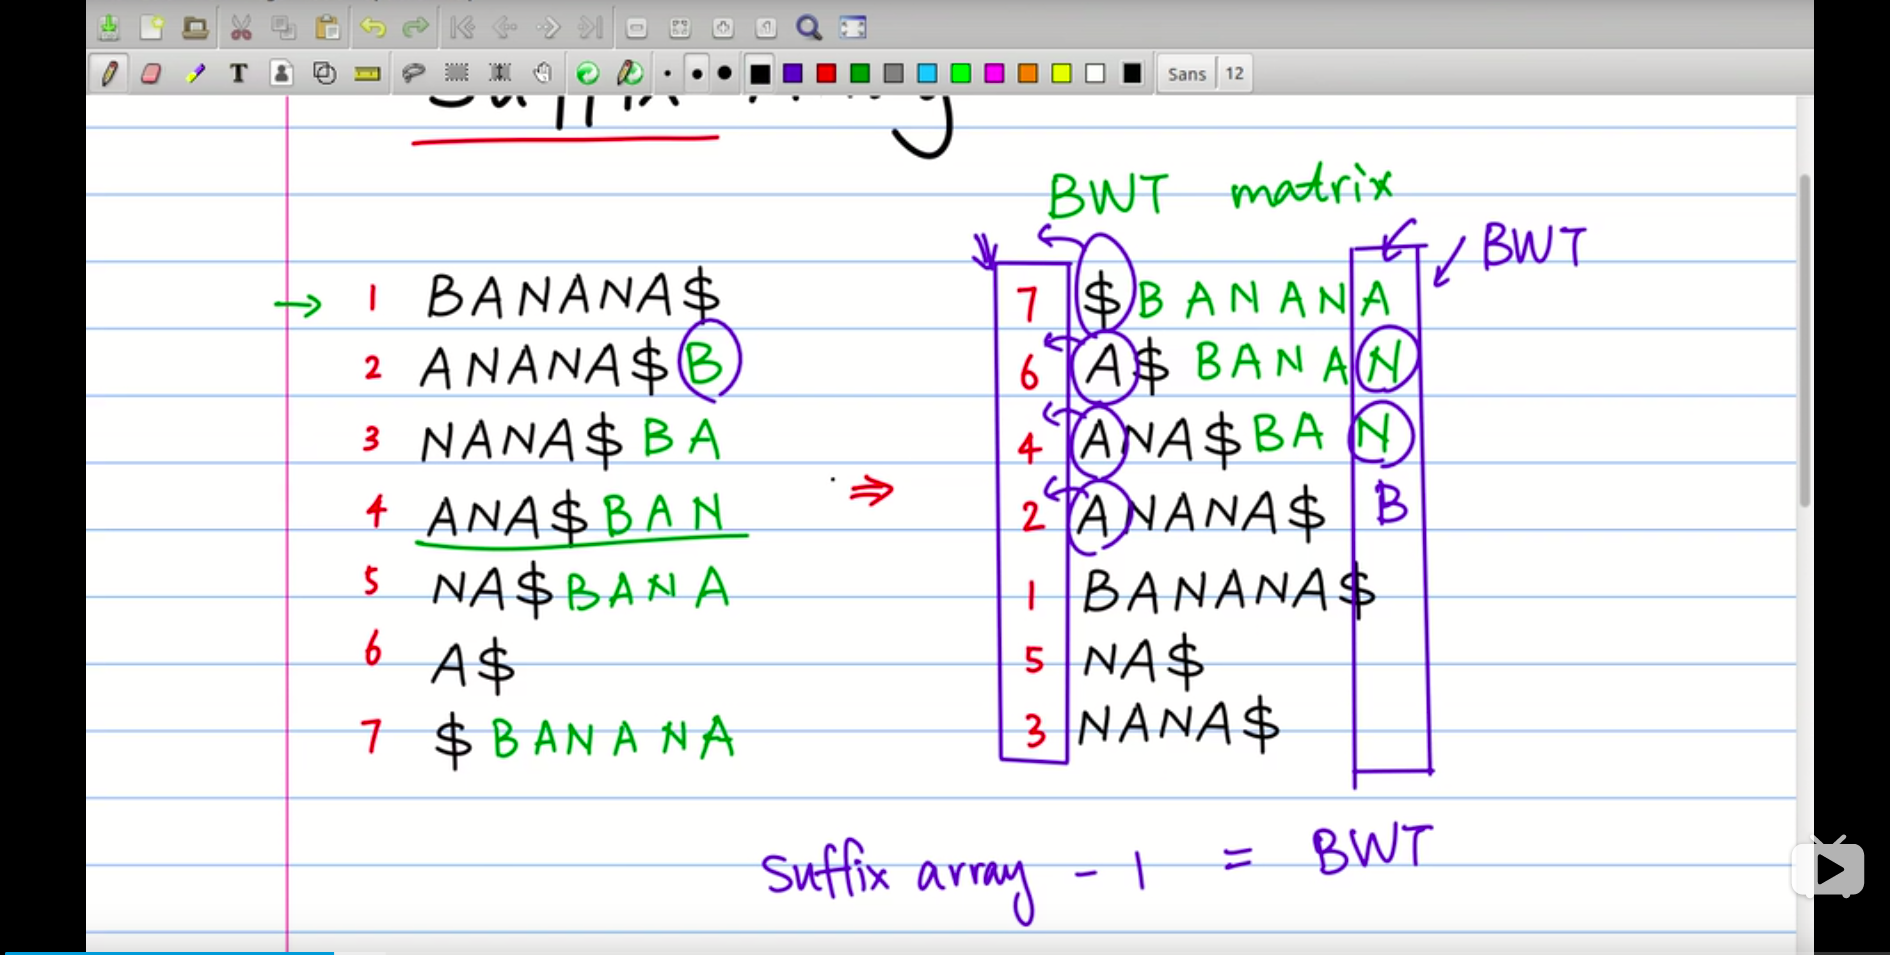 Sans 12
Suffix Array
BWT matrix
BWT
1 BANANA$
2 ANANA$B
3 NANA$BA
4 ANA$BAN
5 NA$BANA
6 A$
7 $BANANA
7 $BANANA
6 A$BANAN
4 ANA$BAN
2 ANANA$ B
1 BANANA$
5 NA$
3 NANA$
Suffix array - 1 = BWT